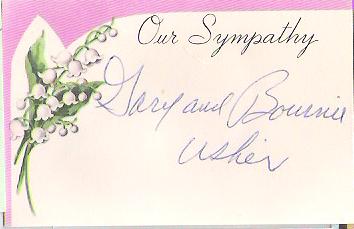 Our Sympathy
Gary and Bonnie
Usher